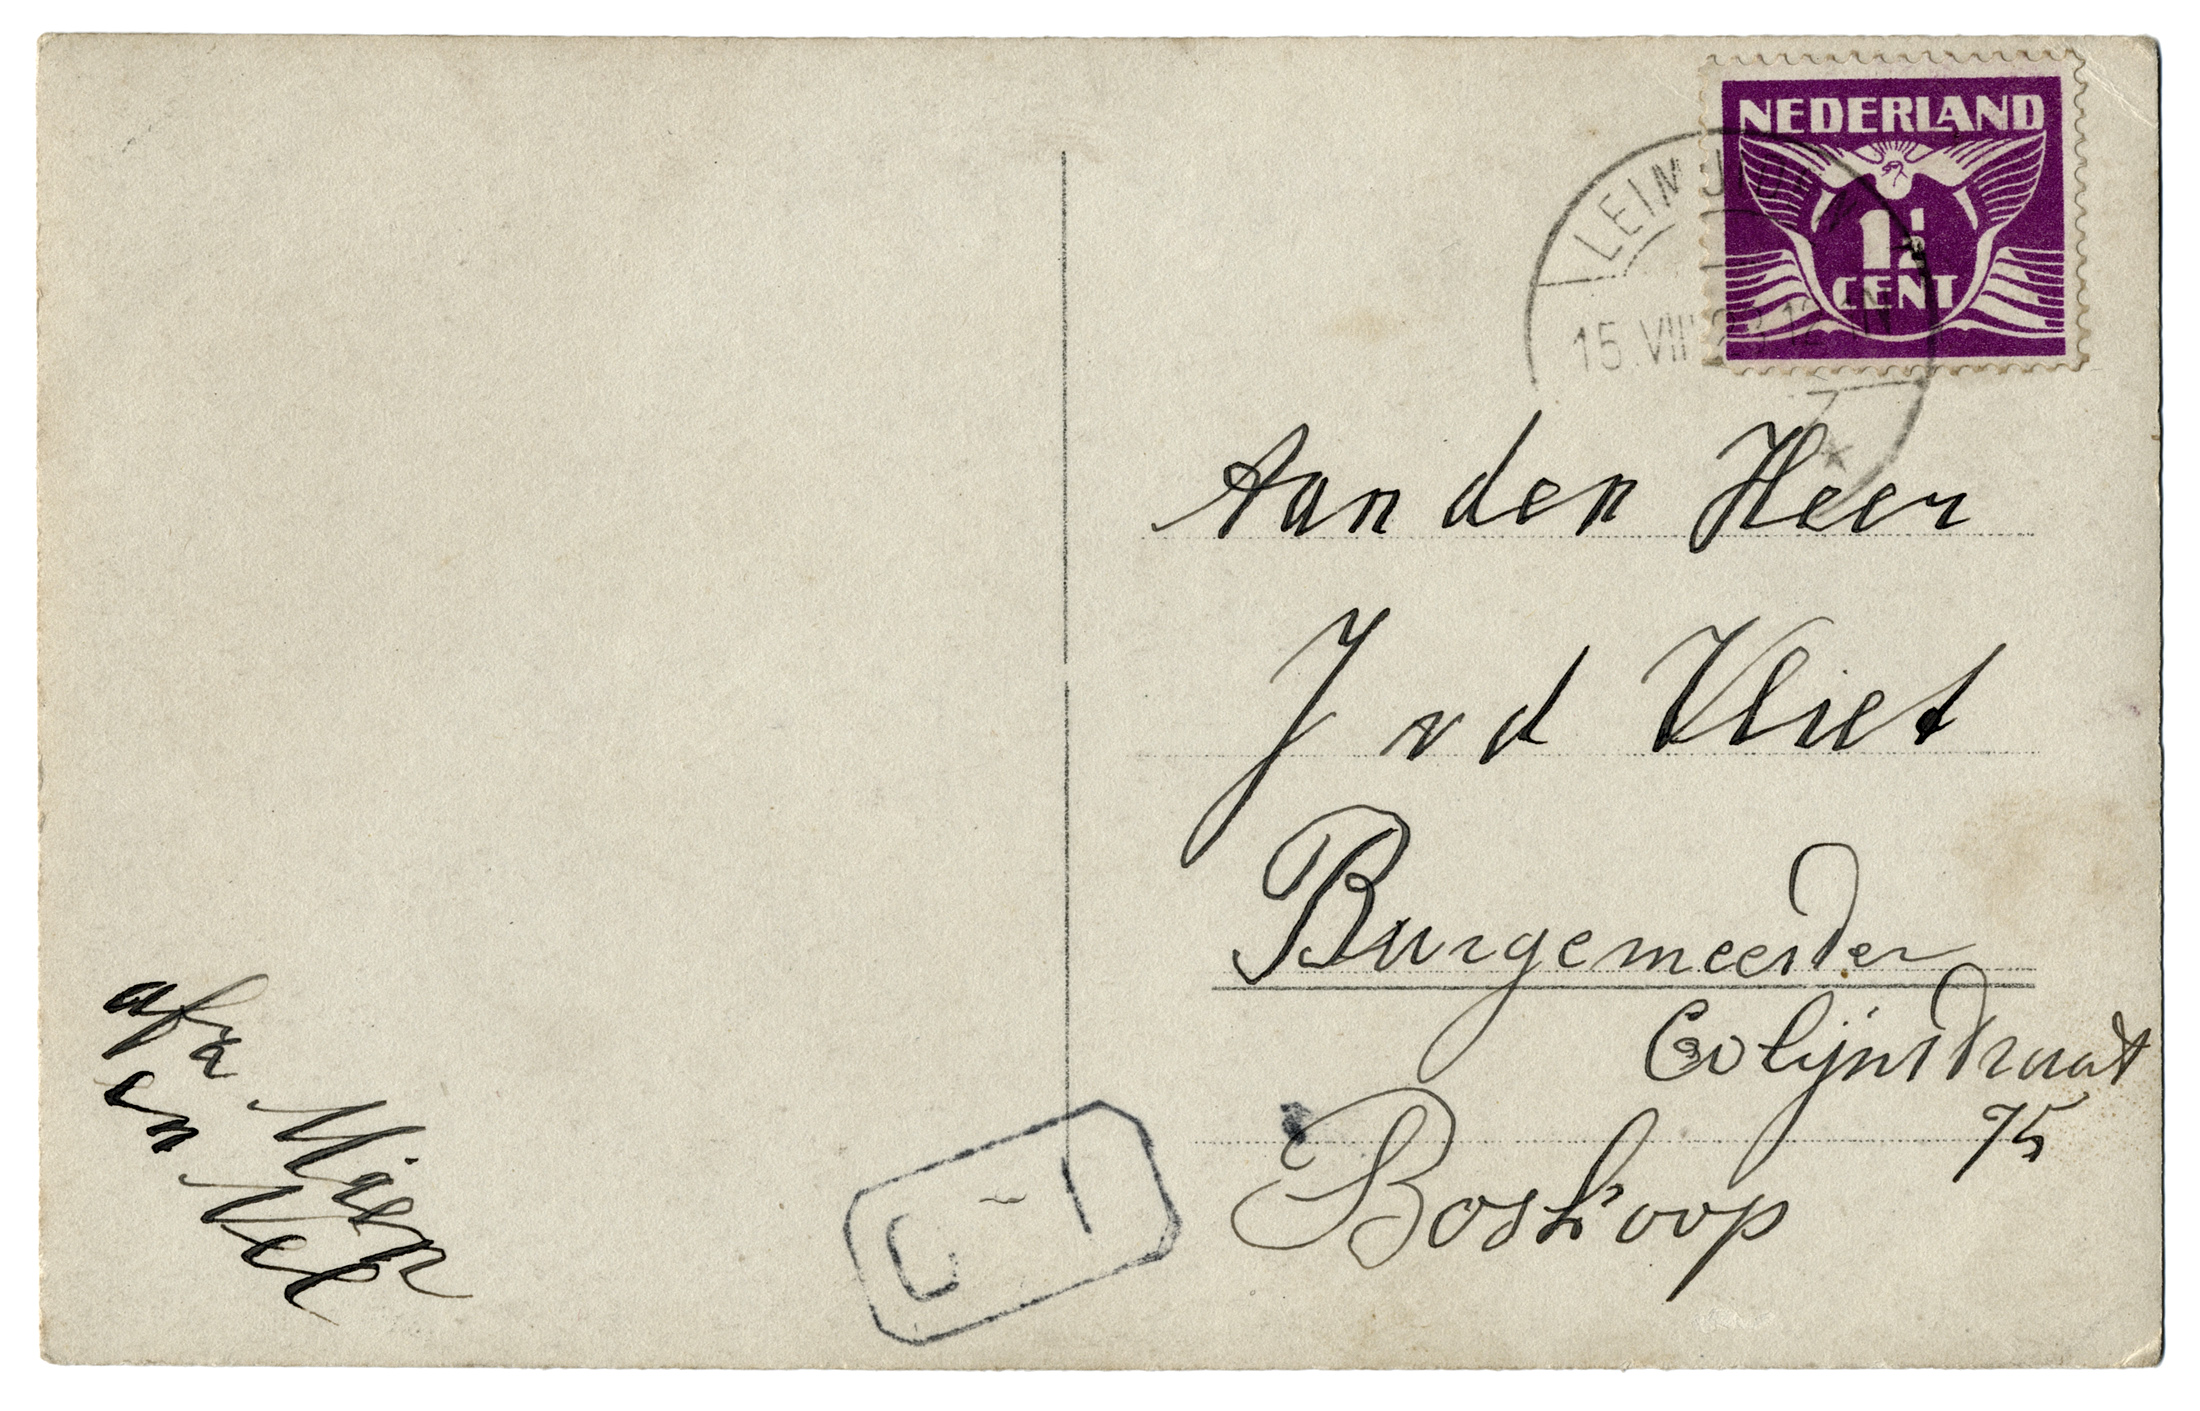 NEDERLAND
1½
CENT
15.VIII
Aan den Heer
J v d Vliet
Burgemeester
Colijnstraat
75
Boskoop
afz
Mien
en
Nel